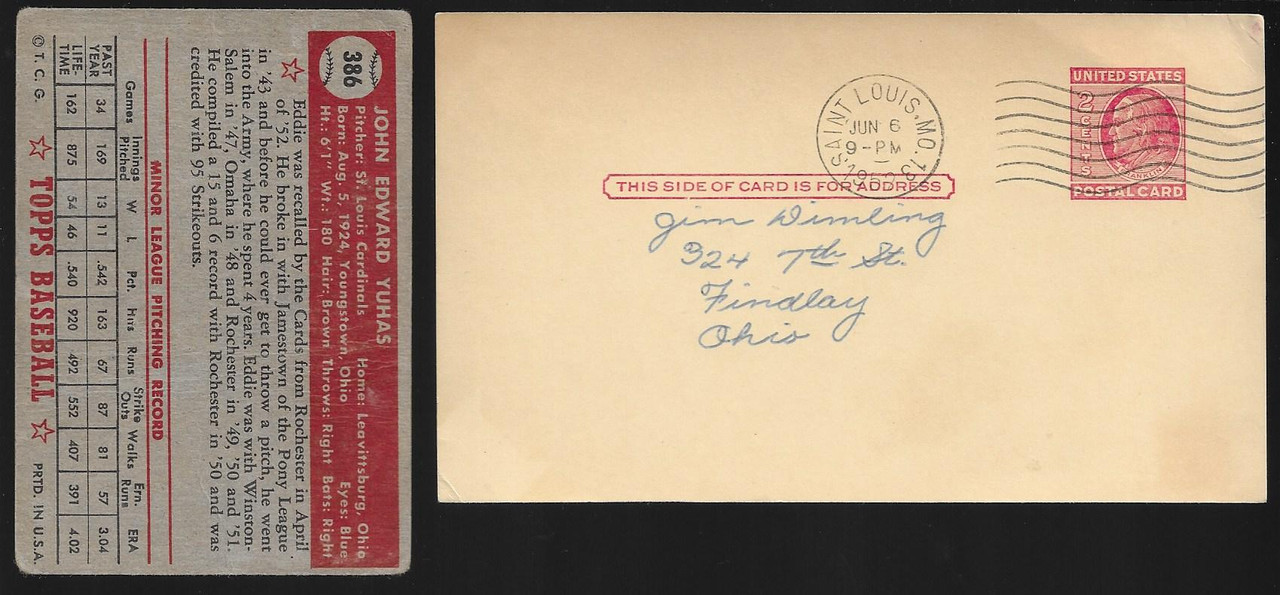 386
JOHN EDWARD YUHAS
Pitcher: St. Louis Cardinals Home: Leavittsburg, Ohio
Born: Aug. 5, 1924, Youngstown, Ohio Eyes: Blue
Ht.: 6'1" Wt.: 180 Hair: Brown Throws: Right Bats: Right
Eddie was recalled by the Cards from Rochester in April
of '52. He broke in with Jamestown of the Pony League
in '43 and before he could ever get to throw a pitch, he went
into the Army, where he spent 4 years. Eddie was with Winston-
Salem in '47, Omaha in '48 and Rochester in '49, '50 and '51.
He compiled a 15 and 6 record with Rochester in '50 and was
credited with 95 Strikeouts.
MINOR LEAGUE PITCHING RECORD
Games Innings Pitched W L Pct. Hits Runs Strike Outs Walks Ern. Runs ERA
PAST YEAR 34 169 13 11 .542 163 67 87 81 57 3.04
LIFE-TIME 162 875 54 46 .540 920 492 552 407 391 4.02
© T. C. G. TOPPS BASEBALL PRTD. IN U.S.A.
UNITED STATES
2 CENTS
FRANKLIN
POSTAL CARD
SAINT LOUIS, MO. 18
JUN 6
9-PM
1952
THIS SIDE OF CARD IS FOR ADDRESS
Jim Dimling
324 7th St.
Findlay
Ohio